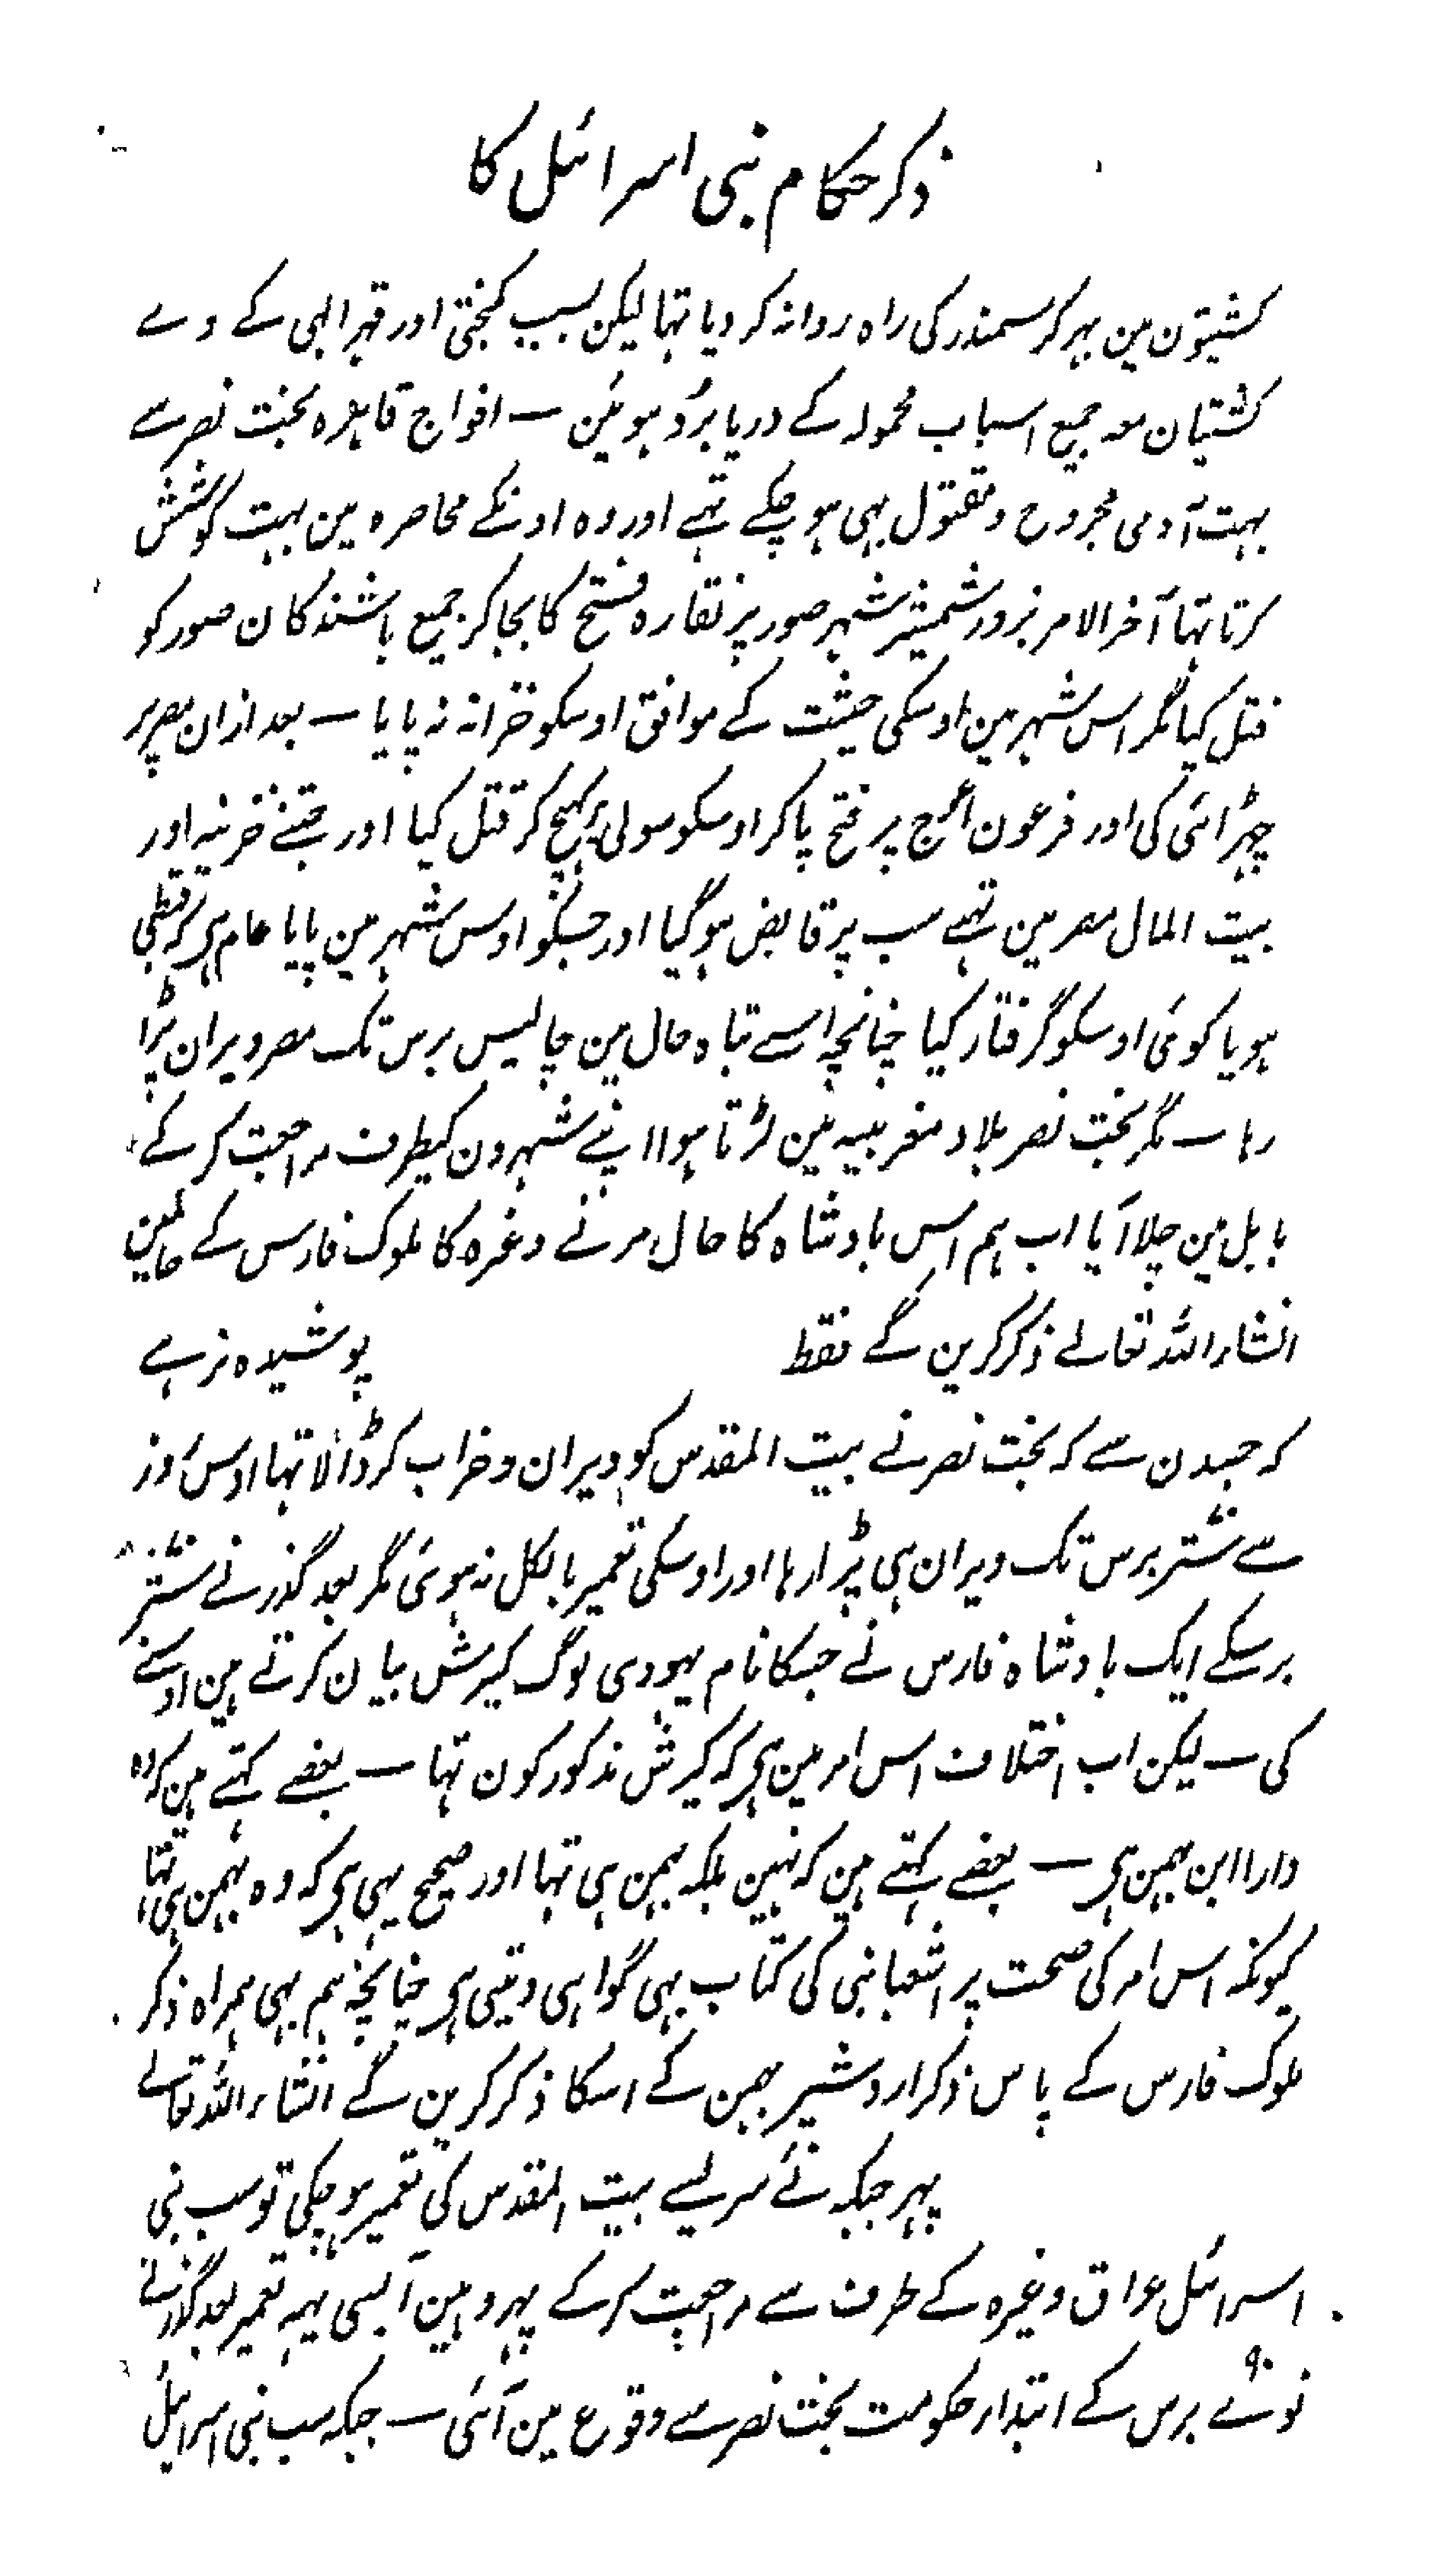 ذکر حکام بنی اسرائل کا
کشیتون مین بہر کر سمندر کی راہ روانہ کر دیا تہا لیکن بسبب کمبختی اور قہر الہی کے وے
کشتیان معہ جمیع اسباب محمولہ کے دریا بُرد ہوئین ــ افواج قاہرہ بخت نصر سے
بہت آدمی مجروح و مقتول بہی ہو چکے تہے اور وہ اونکے محاصرہ مین بہت کوشش
کرتا تہا آخر الامر بزور شمشیر شہر صور پر نقارہ فتح کا بجا کر جمیع باشندکان صور کو
قتل کیا مگر اس شہر مین اوسکی حیثت کے موافق اوسکو خزانہ نہ پایا ــ بعد ازان مصر پر
چہڑائی کی اور فرعون اعرج پر فتح پا کر اوسکو سولی پر کہیچ کر قتل کیا اور جتنے خزینہ اور
بیت المال مصر مین تہے سب پر قابض ہو گیا اور جسکو اوس شہر مین پایا عام ہی کہ قبطی
ہو یا کوئی اوسکو گرفتار کیا چنانچہ اسے تباہ حال مین چالیس برس تک مصر ویران پڑا
رہا ــ مگر بخت نصر بلاد مغربیہ مین لڑتا ہوا اپنے شہرون کیطرف مراجعت کر کے
بابل مین چلا آیا اب ہم اس بادشاہ کا حال مرنے وغرہ کا ملوک فارس کے حالمین
انشاء اللہ تعالے ذکر کرین گے فقط پوشیدہ نر ہے
کہ جسدن سے کہ بخت نصر نے بیت المقدس کو ویران و خراب کر ڈالا تہا اوس روز
سے ستّر برس تک ویران ہی پڑا رہا اور اوسکی تعمیر بالکل نہ ہوئی مگر بعد گذرنے ستّر
برسکے ایک بادشاہ فارس نے جسکا نام یہودی لوگ کیرش بیان کرتے ہین اوسنے
کی ــ لیکن اب اختلاف اس امر مین ہی کہ کیرش مذکور کون تہا ــ بعضے کہتے ہین کہ وہ
دارا ابن بہمن ہی ــ بعضے کہتے ہین کہ نہین بلکہ بہمن ہی تہا اور صحیح یہی ہی کہ وہ بہمن ہی تہا
کیونکہ اس امر کی صحت پر اشعیا نبی کی کتاب بہی گواہی دیتی ہی چنانچہ ہم بہی ہمراہ ذکر
ملوک فارس کے پاس ذکر اردشیر بہمن کے اسکا ذکر کرین گے انشاء اللہ تعالے
پہر جبکہ نئے سر لیے بیت المقدس کی تعمیر ہو چکی تو سب بنی
اسرائل عراق وغیرہ کے طرف سے مراجعت کر کے پہر وہین آبسی یہہ تعمیر بعد گذرنے
نوّے برس کے ابتداء حکومت بخت نصر سے وقوع مین آئی ــ جبکہ سب بنی اسرایل